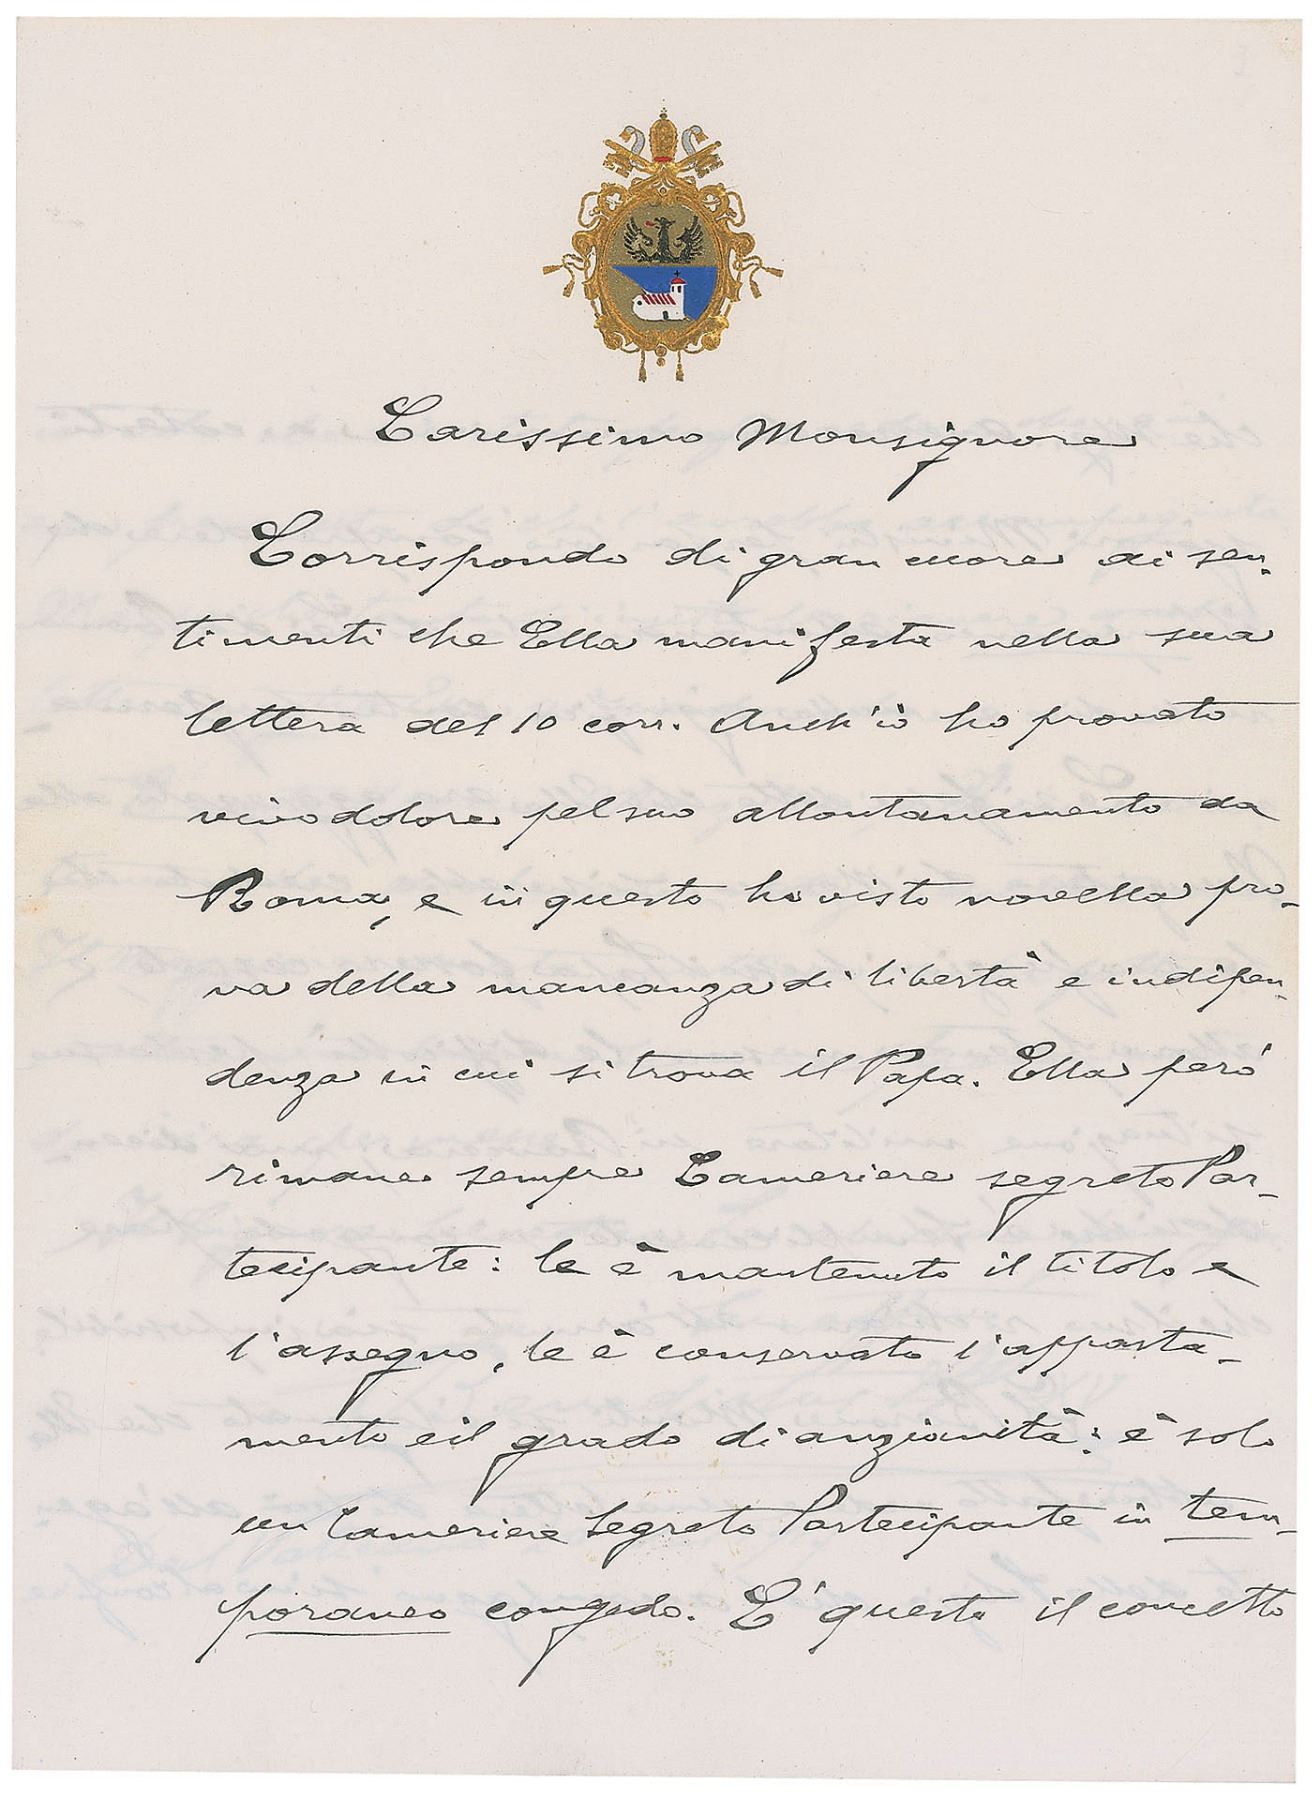 Carissimo Monsignore
Corrispondo di gran cuore ai sen-
timenti che Ella manifesta nella sua
lettera del 10 corr. Anch'io ho provato
vivo dolore pel suo allontanamento da
Roma, e in questo ho visto novella pro-
va della mancanza di libertà e indipen-
denza in cui si trova il Papa. Ella però
rimane sempre Cameriere segreto Par-
tecipante: le è mantenuto il titolo e
l'assegno, le è conservato l'apparta-
mento e il grado di anzianità: è solo
un Cameriere Segreto Partecipante in tem-
poraneo congedo. E' questo il concetto